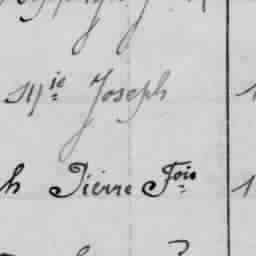 Mie Joseph 1
h Pierre Fois 1